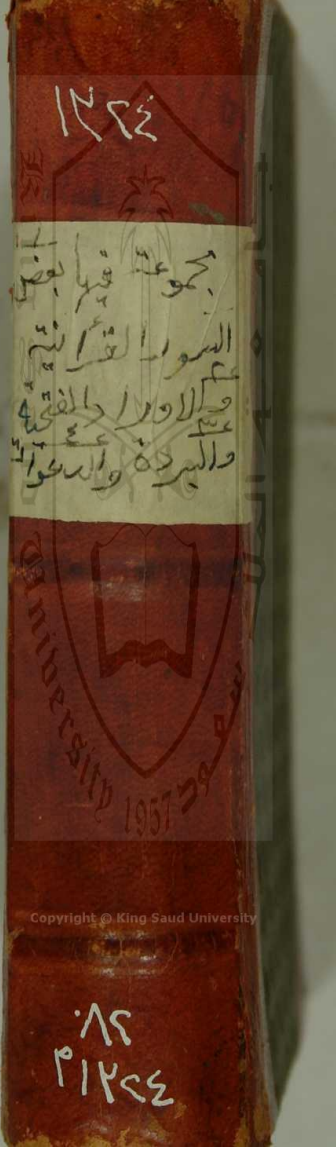 ١٣٢٤
مجموعة فيها بعض
السور القرآنية
والاوراد الفتحية
والبردة والدعوات
University 1957
سعود
Copyright © King Saud University
٠٨٢
م١٣٢٤